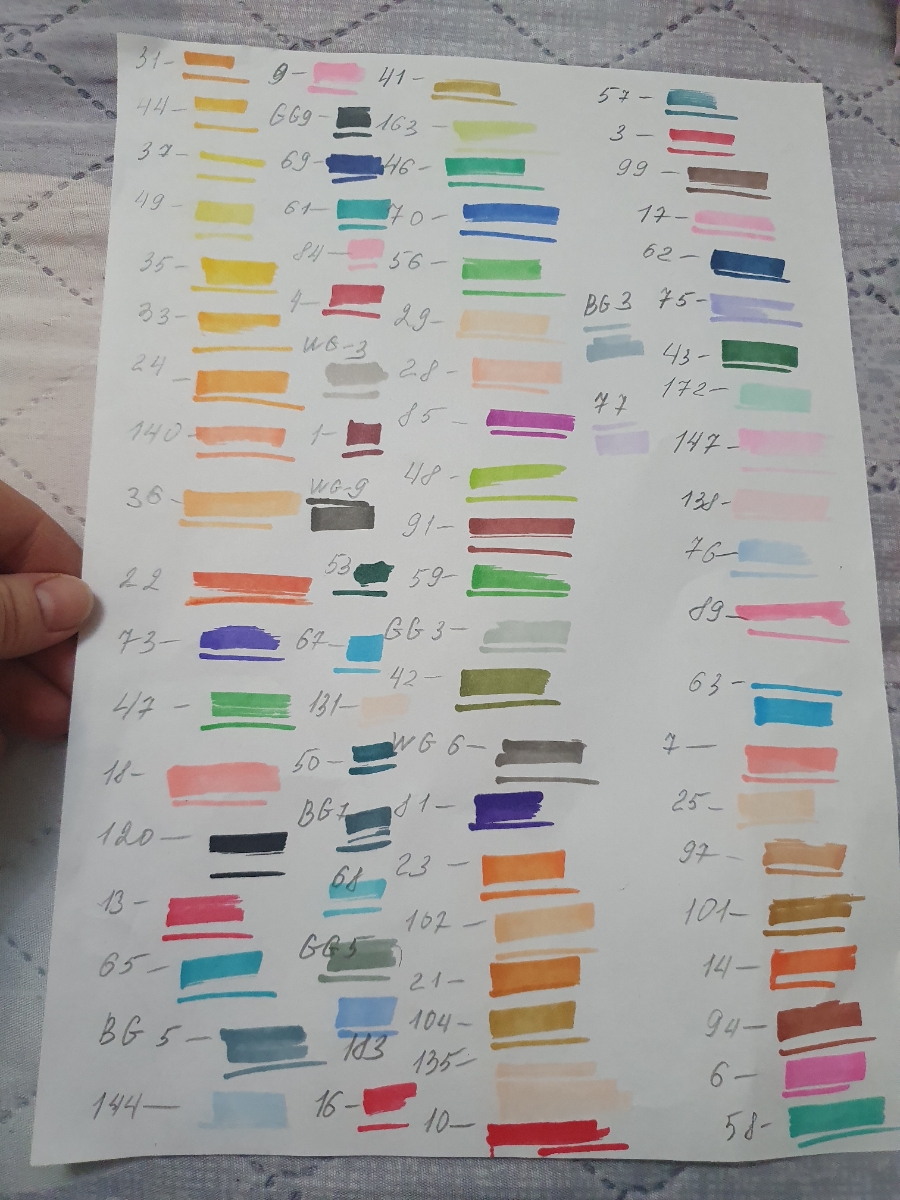 31-
44-
37-
49-
35-
33-
24
140
36-
22
73-
47-
18-
120-
13-
65-
BG 5-
144-
9-
GG9-
69-
61-
84-
4-
WG-3
1-
WG-9
53
67-
131-
50-
BG7
68
GG5
183
16-
41-
163-
46-
70-
56-
29-
28-
85-
48-
91-
59-
GG 3-
42-
WG 6-
81-
23-
107-
21-
104-
135-
10-
BG3
77
57-
3-
99-
17-
62-
75-
43-
172-
147-
138-
76-
89-
63-
7-
25-
97-
101-
14-
94-
6-
58-